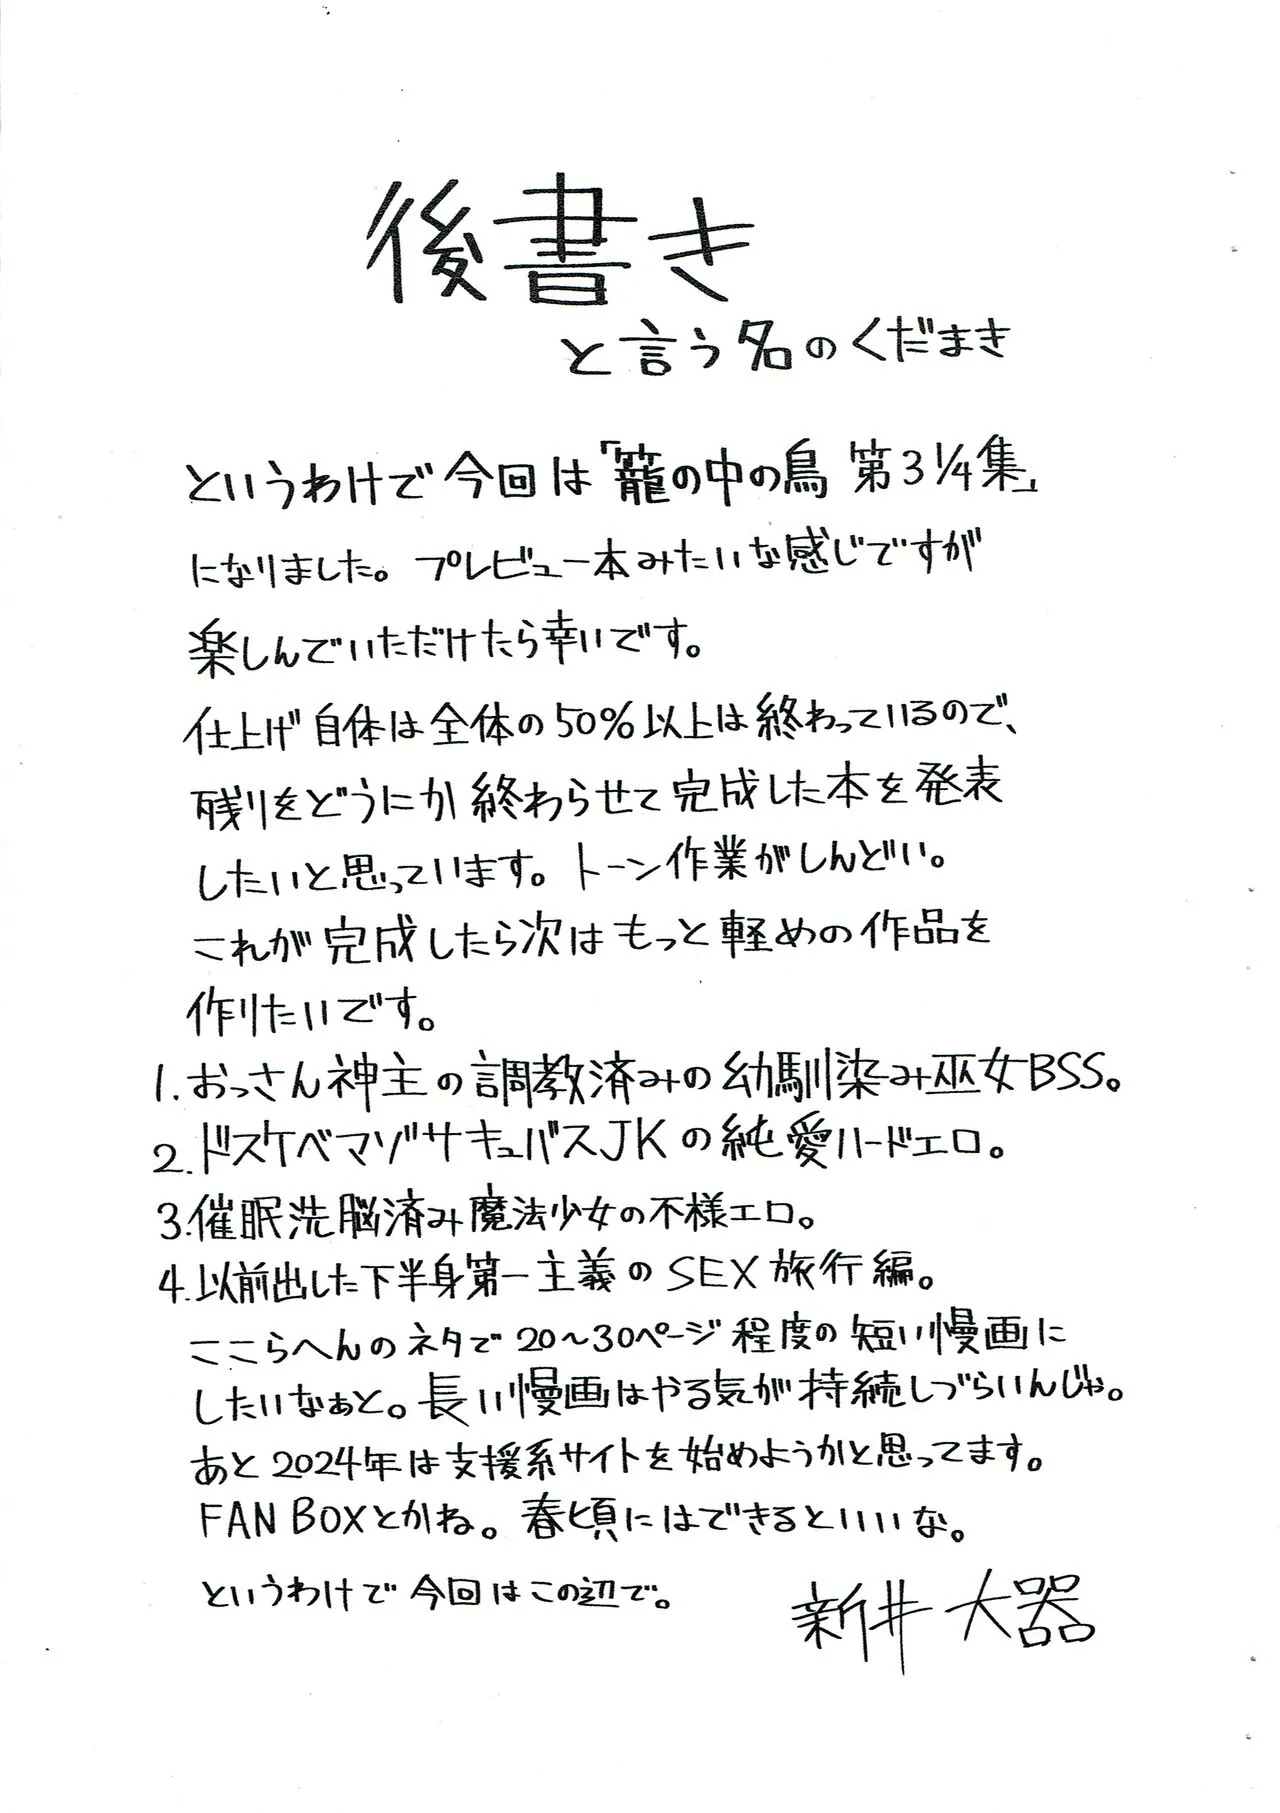 後書き
と言う名のくだまき
というわけで今回は「籠の中の鳥 第3 1/4集」
になりました。プレビュー本みたいな感じですが
楽しんでいただけたら幸いです。
仕上げ自体は全体の50%以上は終わっているので、
残りをどうにか終わらせて完成した本を発表
したいと思っています。トーン作業がしんどい。
これが完成したら次はもっと軽めの作品を
作りたいです。
1.おっさん神主の調教済みの幼馴染み巫女BSS。
2.ドスケベマゾサキュバスJKの純愛ハードエロ。
3.催眠洗脳済み魔法少女の不様エロ。
4.以前出した下半身第一主義のSEX旅行編。
ここらへんのネタで20〜30ページ程度の短い慢画に
したいなぁと。長い慢画はやる気が持続しづらいんじゃ。
あと2024年は支援系サイトを始めようかと思ってます。
FANBOXとかね。春頃にはできるといいな。
というわけで今回はこの辺で。
新井 大器